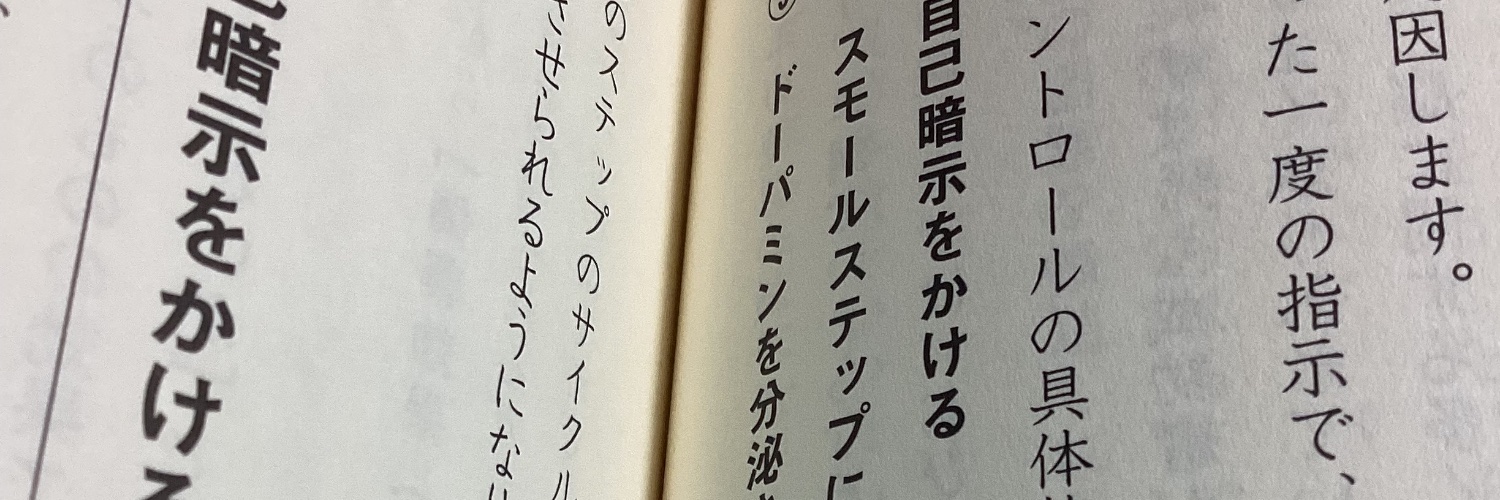 因します。
た一度の指示で、
ントロールの具体
自己暗示をかける
スモールステップに
ドーパミンを分泌
のステップのサイクル
させられるようにな
己暗示をかける